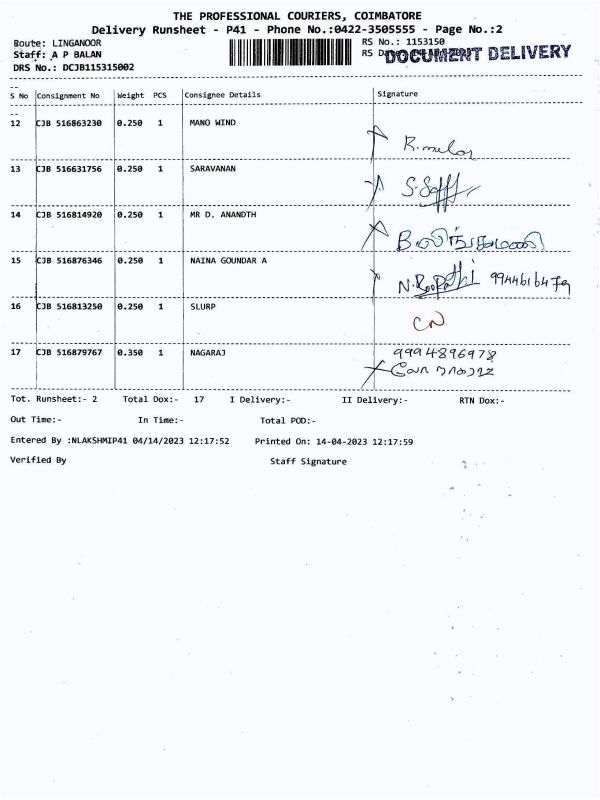 THE PROFESSIONAL COURIERS, COIMBATORE
Delivery Runsheet - P41 - Phone No.:0422-3505555 - Page No.:2
Route: LINGANOOR RS No.: 1153150
Staff: A P BALAN RS DOCUMENT DELIVERY
DRS No.: DCJB115315002
S No Consignment No Weight PCS Consignee Details Signature
12 CJB 516863230 0.250 1 MANO WIND
13 CJB 516631756 0.250 1 SARAVANAN
14 CJB 516814920 0.250 1 MR D. ANANDTH
15 CJB 516876346 0.250 1 NAINA GOUNDAR A
16 CJB 516813250 0.250 1 SLURP
CN
17 CJB 516879767 0.350 1 NAGARAJ 9994896978
Tot. Runsheet:- 2 Total Dox:- 17 I Delivery:- II Delivery:- RTN Dox:-
Out Time:- In Time:- Total POD:-
Entered By :NLAKSHMIP41 04/14/2023 12:17:52 Printed On: 14-04-2023 12:17:59
Verified By Staff Signature